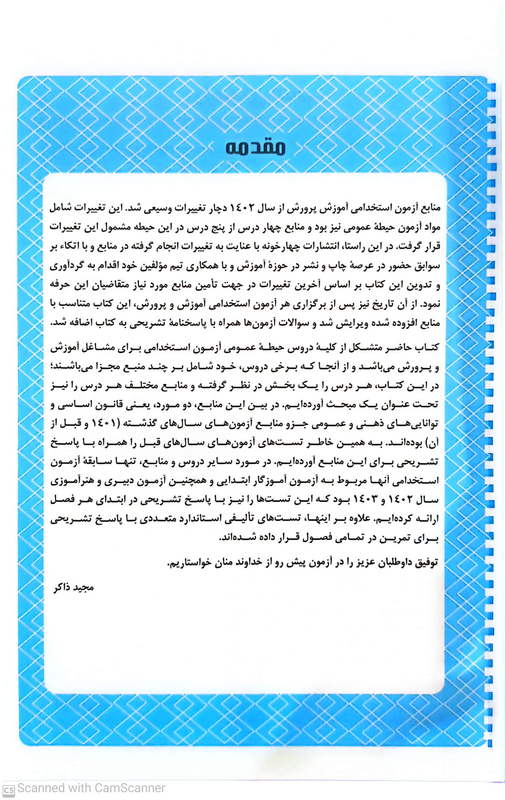 مقدمه
منابع آزمون استخدامی آموزش پرورش از سال ۱۴۰۲ دچار تغییرات وسیعی شد. این تغییرات شامل
مواد آزمون حیطهٔ عمومی نیز بود و منابع چهار درس از پنج درس در این حیطه مشمول این تغییرات
قرار گرفت. در این راستا، انتشارات چهارخونه با عنایت به تغییرات انجام گرفته در منابع و با اتکاء بر
سوابق حضور در عرصهٔ چاپ و نشر در حوزهٔ آموزش و با همکاری تیم مؤلفین خود اقدام به گردآوری
و تدوین این کتاب بر اساس آخرین تغییرات در جهت تأمین منابع مورد نیاز متقاضیان این حرفه
نمود. از آن تاریخ نیز پس از برگزاری هر آزمون استخدامی آموزش و پرورش، این کتاب متناسب با
منابع افزوده شده ویرایش شد و سوالات آزمون‌ها همراه با پاسخنامهٔ تشریحی به کتاب اضافه شد.
کتاب حاضر متشکل از کلیهٔ دروس حیطهٔ عمومی آزمون استخدامی برای مشاغل آموزش
و پرورش می‌باشد و از آنجا که برخی دروس، خود شامل بر چند منبع مجزا می‌باشند؛
در این کتاب، هر درس را یک بخش در نظر گرفته و منابع مختلف هر درس را نیز
تحت عنوان یک مبحث آورده‌ایم. در بین این منابع، دو مورد، یعنی قانون اساسی و
توانایی‌های ذهنی و عمومی جزو منابع آزمون‌های سال‌های گذشته (۱۴۰۱ و قبل از
آن) بوده‌اند. به همین خاطر تست‌های آزمون‌های سال‌های قبل را همراه با پاسخ
تشریحی برای این منابع آورده‌ایم. در مورد سایر دروس و منابع، تنها سابقهٔ آزمون
استخدامی آنها مربوط به آزمون آموزگار ابتدایی و همچنین آزمون دبیری و هنرآموزی
سال ۱۴۰۲ و ۱۴۰۳ بود که این تست‌ها را نیز با پاسخ تشریحی در ابتدای هر فصل
ارائه کرده‌ایم. علاوه بر اینها، تست‌های تألیفی استاندارد متعددی با پاسخ تشریحی
برای تمرین در تمامی فصول قرار داده شده‌اند.
توفیق داوطلبان عزیز را در آزمون پیش رو از خداوند منان خواستاریم.
مجید ذاکر
CS Scanned with CamScanner